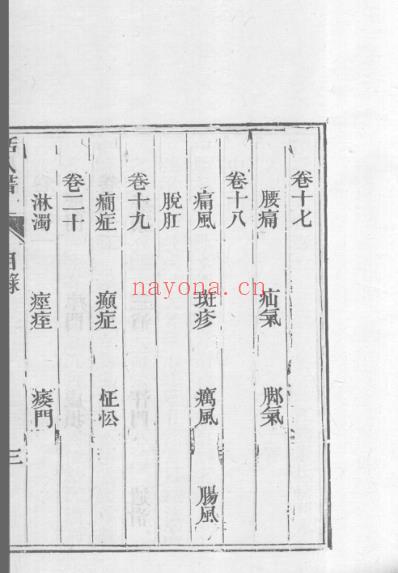 卷十七
腰痛 疝氣 脚氣
卷十八
痛風 斑疹 癘風 腸風
脫肛
卷十九
癇症 癲症 怔忪
卷二十
淋濁 痙痓 痿門
目錄 三
nayona.cn